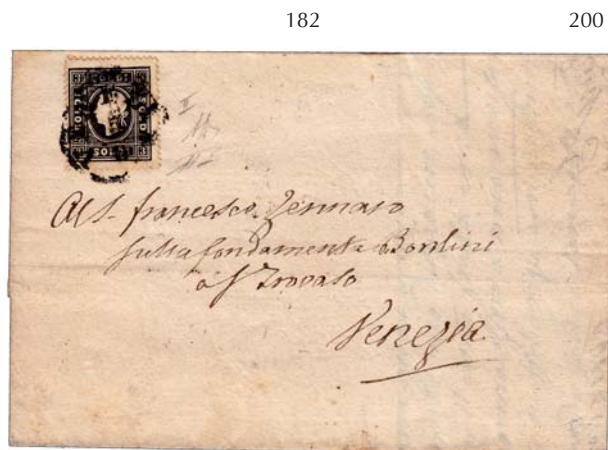 182 200
SOLDI
Al S. Francesco Gennaro
sulla fondamenta Bordini
a S Trovaso
Venezia